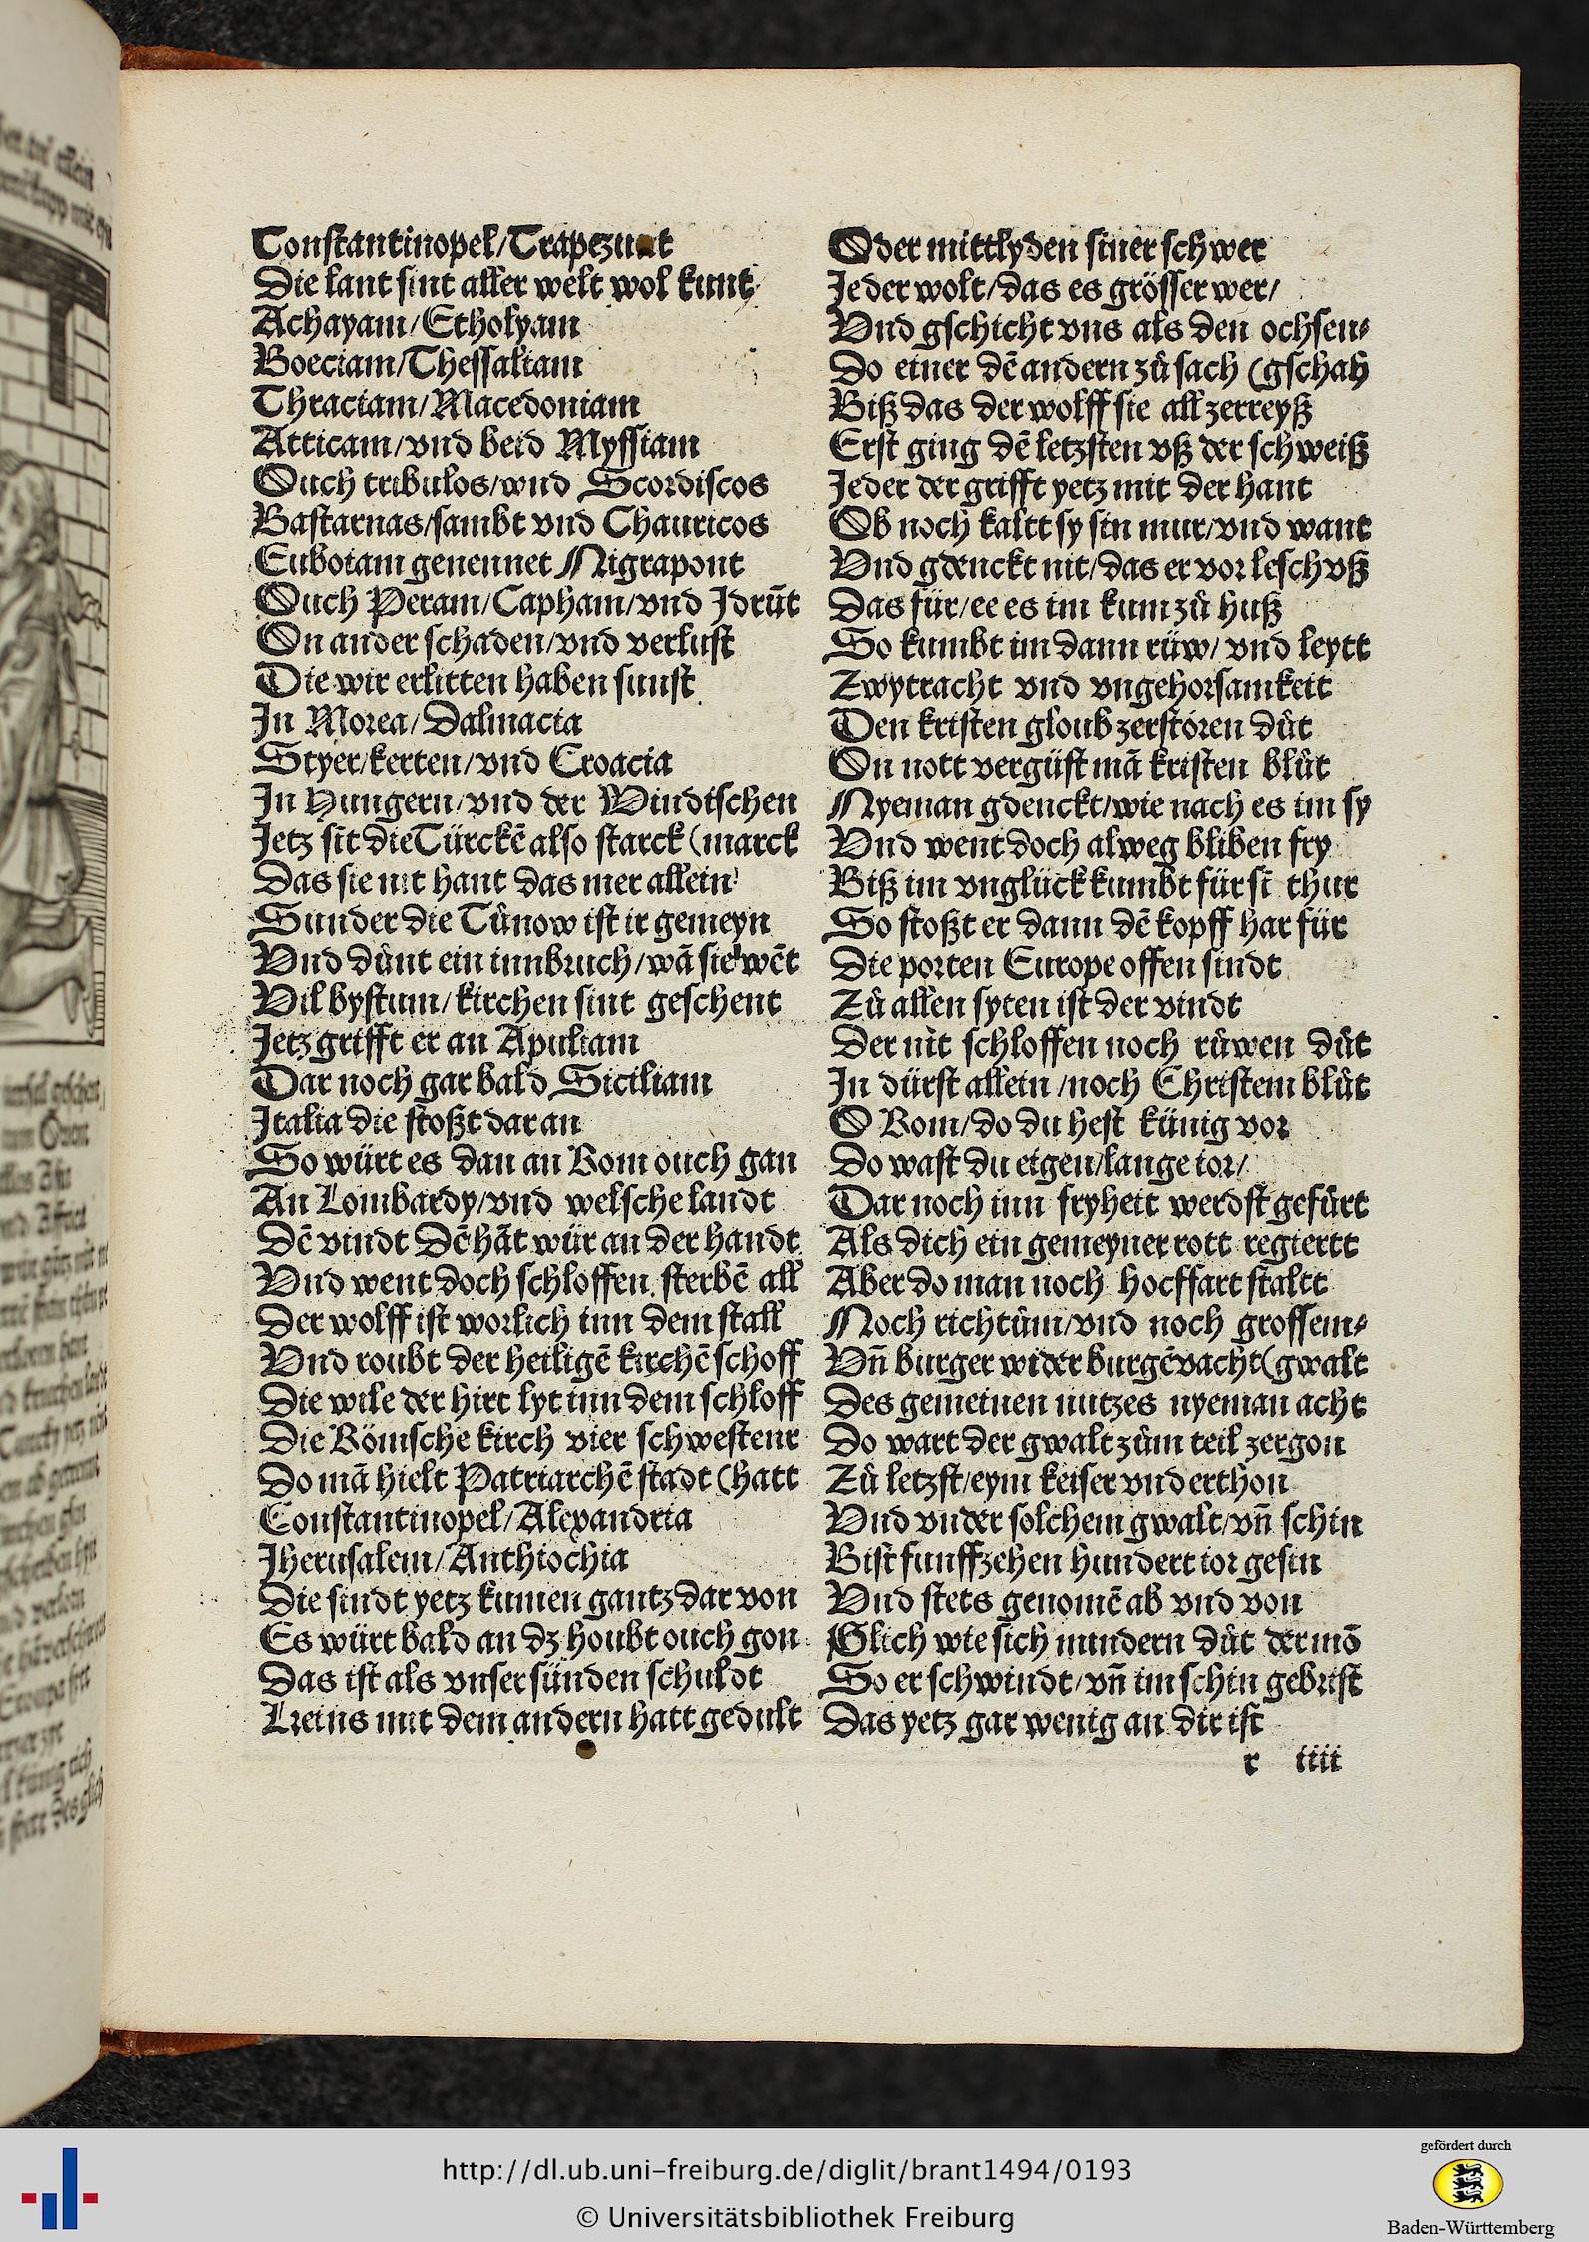 Constantinopel/Trapezunt
Die lant sint aller welt wol kunt
Achayam/Etholyam
Boeciam/Thessaliam
Thraciam/Macedoniam
Atticam/vnd beid Myssiam
Ouch tribulos/vnd Scordiscos
Bastarnas/sambt vnd Thauricos
Euboiam genennet Nigrapont
Ouch Peram/Capham/vnd Jdrūt
On ander schaden/vnd verlust
Die wir erlitten haben sunst
Jn Morea/Dalmacia
Styer/kerten/vnd Croacia
Jn Hungern/vnd der Windischen
Jetz sīt die Türckē also starck (marck
Das sie nit hant das mer allein
Sunder die Tůnow ist ir gemeyn
Vnd důnt ein innbruch/wā sie wēt
Vil bystum/kirchen sint geschent
Jetz grifft er an Apuliam
Dar noch gar bald Siciliam
Jtalia die stoßt dar an
So würt es dan an Rom ouch gan
An Lombardy/vnd welsche landt
Dē vindt Dē hāt wür an der handt
Vnd went doch schloffen sterbē all
Der wolff ist worlich inn dem stall
Vnd roubt der heiligē kirchē schoff
Die wile der hirt lyt inn dem schloff
Die Römsche kirch vier schwestenr
Do mā hielt Patriarchē stadt (hatt
Constantinopel/Alexandria
Jherusalem/Anthiochia
Die sindt yetz kumen gantz dar von
Es würt bald an dz houbt ouch gon
Das ist als vnser sünden schuldt
Keins mit dem andern hatt gedult
Oder mittlyden siner schwer
Jeder wolt/das es grösser wer/
Vnd gschicht vns als den ochsen⸗
Do einer dē andern zů sach (gschah
Biß das der wolff sie all zerreyß
Erst ging dē letzsten vß der schweiß
Jeder der grifft yetz mit der hant
Ob noch kaltt sy sin mur/vnd want
Vnd gdenckt nit/das er vor lesch vß
Das für/ee es im kum zů huß
So kumbt im dann rüw/vnd leytt
Zwytracht vnd vngehorsamkeit
Den kristen gloub zerstören důt
On nott vergüst mā kristen blůt
Nyeman gdenckt/wie nach es im sy
Vnd went doch alweg bliben fry
Biß im vnglück kumbt für sī thür
So stoßt er dann dē kopff har für
Die porten Europe offen sindt
Zů allen syten ist der vindt
Der nit schloffen noch růwen důt
Jn dürst allein/noch Christem blůt
O Rom/do du hest künig vor
Do wast du eigen/lange ior/
Dar noch inn fryheit werdst gefůrt
Als dich ein gemeyner rott regiertt
Aber do man noch hochffart staltt
Noch richtům/vnd noch grossem⸗
Vn̄ burger wider burgē vacht (gwalt
Des gemeinen nutzes nyeman acht
Do wart der gwalt zům teil zergon
Zů letzst/eym keiser vnderthon
Vnd vnder solchem gwalt/vn̄ schin
Bist funffzehen hundert ior gesin
Vnd stets genomē ab vnd von
Glich wie sich mindern důt der mō
So er schwindt/vn̄ im schin gebrist
Das yetz gar wenig an dir ist
r iiii
http://dl.ub.uni-freiburg.de/diglit/brant1494/0193
© Universitätsbibliothek Freiburg
gefördert durch
Baden-Württemberg